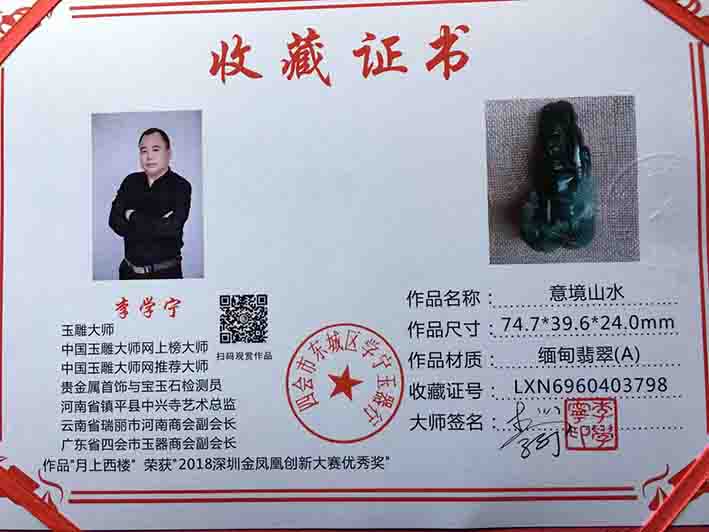 收藏证书
李学宁
玉雕大师
中国玉雕大师网上榜大师
中国玉雕大师网推荐大师
贵金属首饰与宝玉石检测员
河南省镇平县中兴寺艺术总监
云南省瑞丽市河南商会副会长
广东省四会市玉器商会副会长
作品"月上西楼" 荣获"2018深圳金凤凰创新大赛优秀奖"
扫码观赏作品
四会市东城区学宁玉器行
作品名称: 意境山水
作品尺寸: 74.7*39.6*24.0mm
作品材质: 缅甸翡翠(A)
收藏证号: LXN6960403798
大师签名:
李學寧印